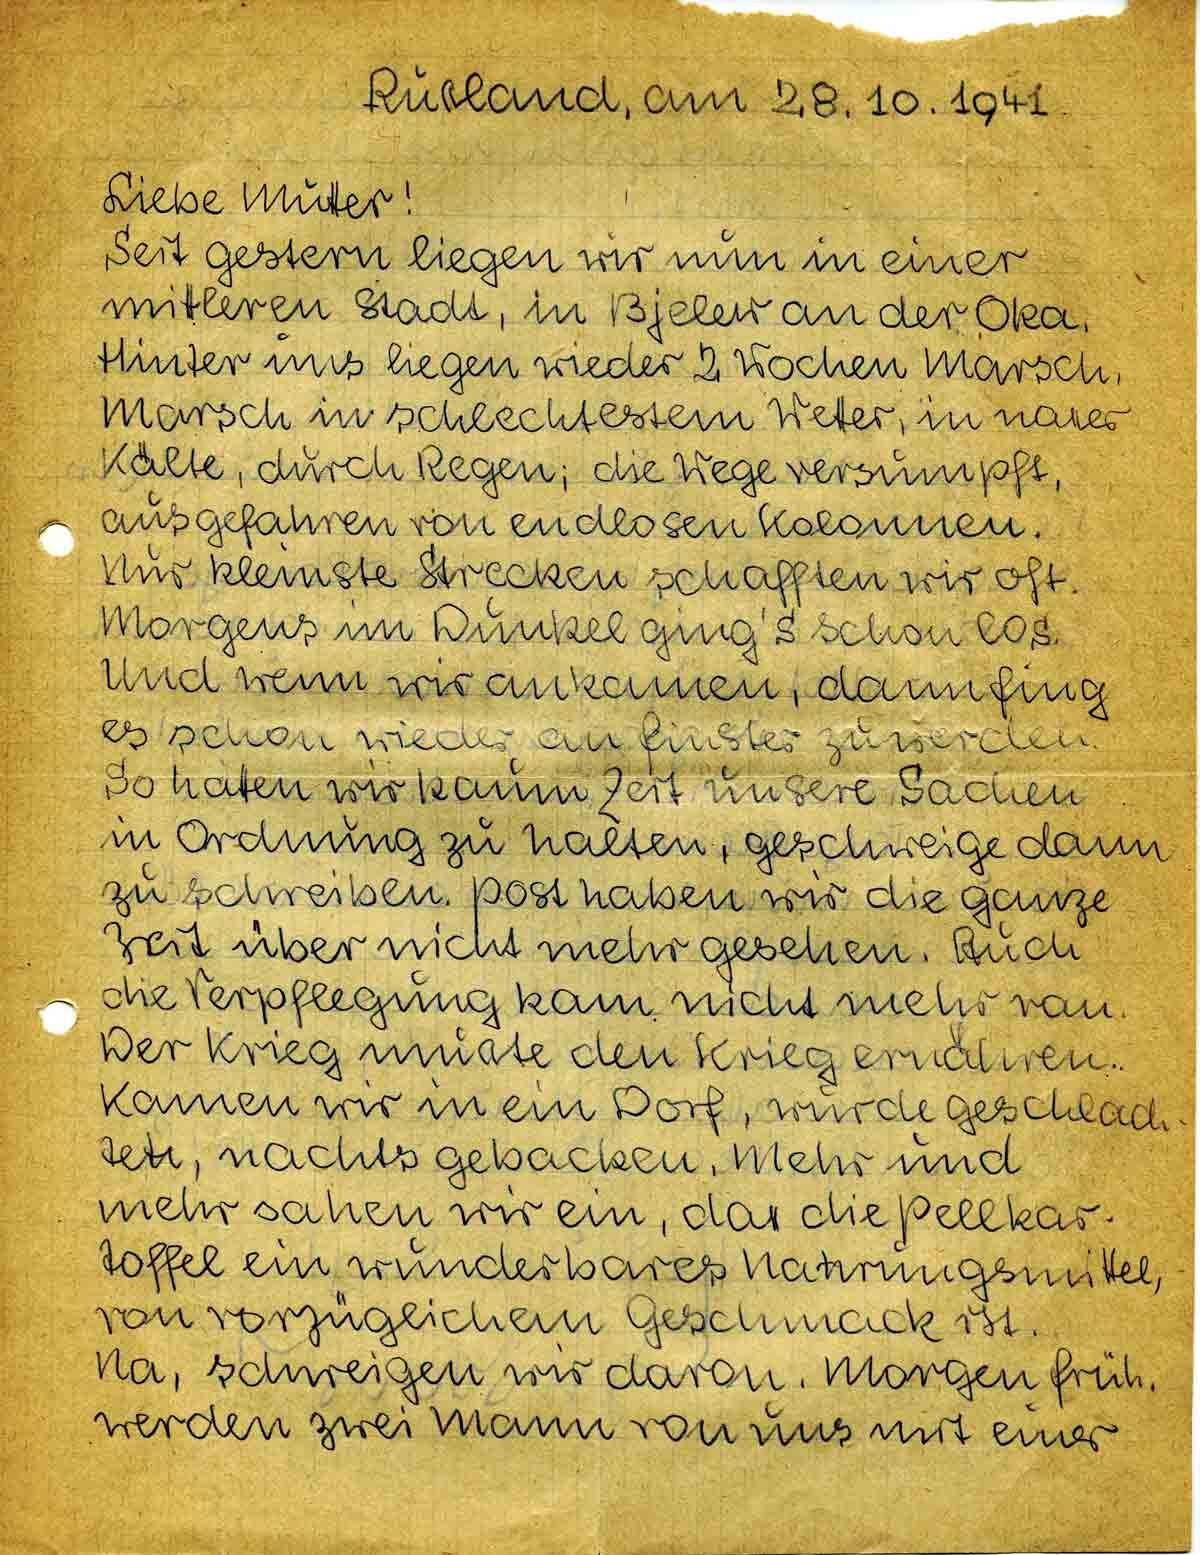 Rußland, am 28.10.1941
Liebe Mutter!
Seit gestern liegen wir nun in einer
mittleren Stadt, in Bjelew an der Oka.
Hinter uns liegen wieder 2 Wochen Marsch.
Marsch in schlechtestem Wetter, in nasser
Kälte, durch Regen; die Wege versumpft,
ausgefahren von endlosen Kolonnen.
Nur kleinste Strecken schafften wir oft.
Morgens im Dunkel ging's schon los.
Und wenn wir ankamen, dann fing
es schon wieder an finster zu werden.
So hatten wir kaum Zeit unsere Sachen
in Ordnung zu halten, geschweige dann
zu schreiben. Post haben wir die ganze
Zeit über nicht mehr gesehen. Auch
die Verpflegung kam nicht mehr ran.
Der Krieg mußte den Krieg ernähren.
Kamen wir in ein Dorf, wurde geschlach-
tet, nachts gebacken. Mehr und
mehr sahen wir ein, daß die Pellkar-
toffel ein wunderbares Nahrungsmittel,
von vorzüglichem Geschmack ist.
Na, schweigen wir davon. Morgen früh
werden zwei Mann von uns mit einer